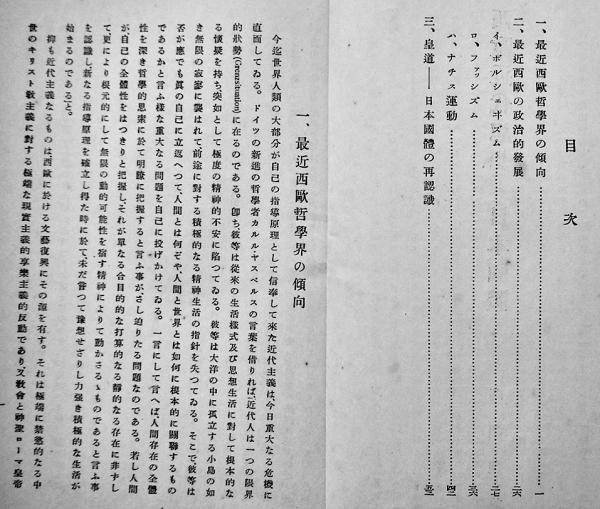 目次
一、最近西歐哲學界の傾向……一
二、最近西歐の政治的發展……一六
イ、ボルシェヰズム……一七
ロ、ファッシズム……三六
ハ、ナチス運動……四二
三、皇道――日本國體の再認識……五三
一、最近西歐哲學界の傾向
今迄世界人類の大部分が自己の指導原理として信奉して來た近代主義は、今日重大なる危機に
直面してゐる。ドイツの新進の哲學者カルル・ヤスペルスの言葉を借りれば、近代人は一つの限界
的狀勢(Grenzsituation)に在るのである。卽ち、彼等は從來の生活樣式及び思想生活に對して根本的な
る懷疑を持ち突如として極度の精神的不安に陷つてゐる。彼等は大洋の中に孤立する小島の如
き無限の寂寥に襲はれて前途に對する積極的なる精神生活の指針を失つてゐる。そこで彼等は
否が應でも眞の自己に立返へつて、人間とは何ぞや、人間と世界とは如何に根本的に關聯するもの
であるかと言ふ樣な重大なる問題を自己に投げかけてゐる。一言にして言へば、人間存在の全體
性を深き哲學的思索に於て明瞭に把握すると言ふ事が、さし迫りたる問題なのである。若し人間
が、自己の全體性をはつきりと把握し、それが單なる合目的的な打算的なる靜的なる存在に非ずし
て、更により根元的にして無限の動的可能性を宿す精神によりて動かさるゝものであると言ふ事
を認識し、新なる指導原理を確立し得た時に於て、未だ嘗つて豫想せざりし力强き積極的な生活が
始まるのである。
抑も近代主義なるものは西歐に於ける文藝復興にその源を有す。それは極端に禁慾的なる中
世のキリスト敎主義に對する極端な現實主義的享樂主義的反動であり、又敎會と神聖ローマ皇帝